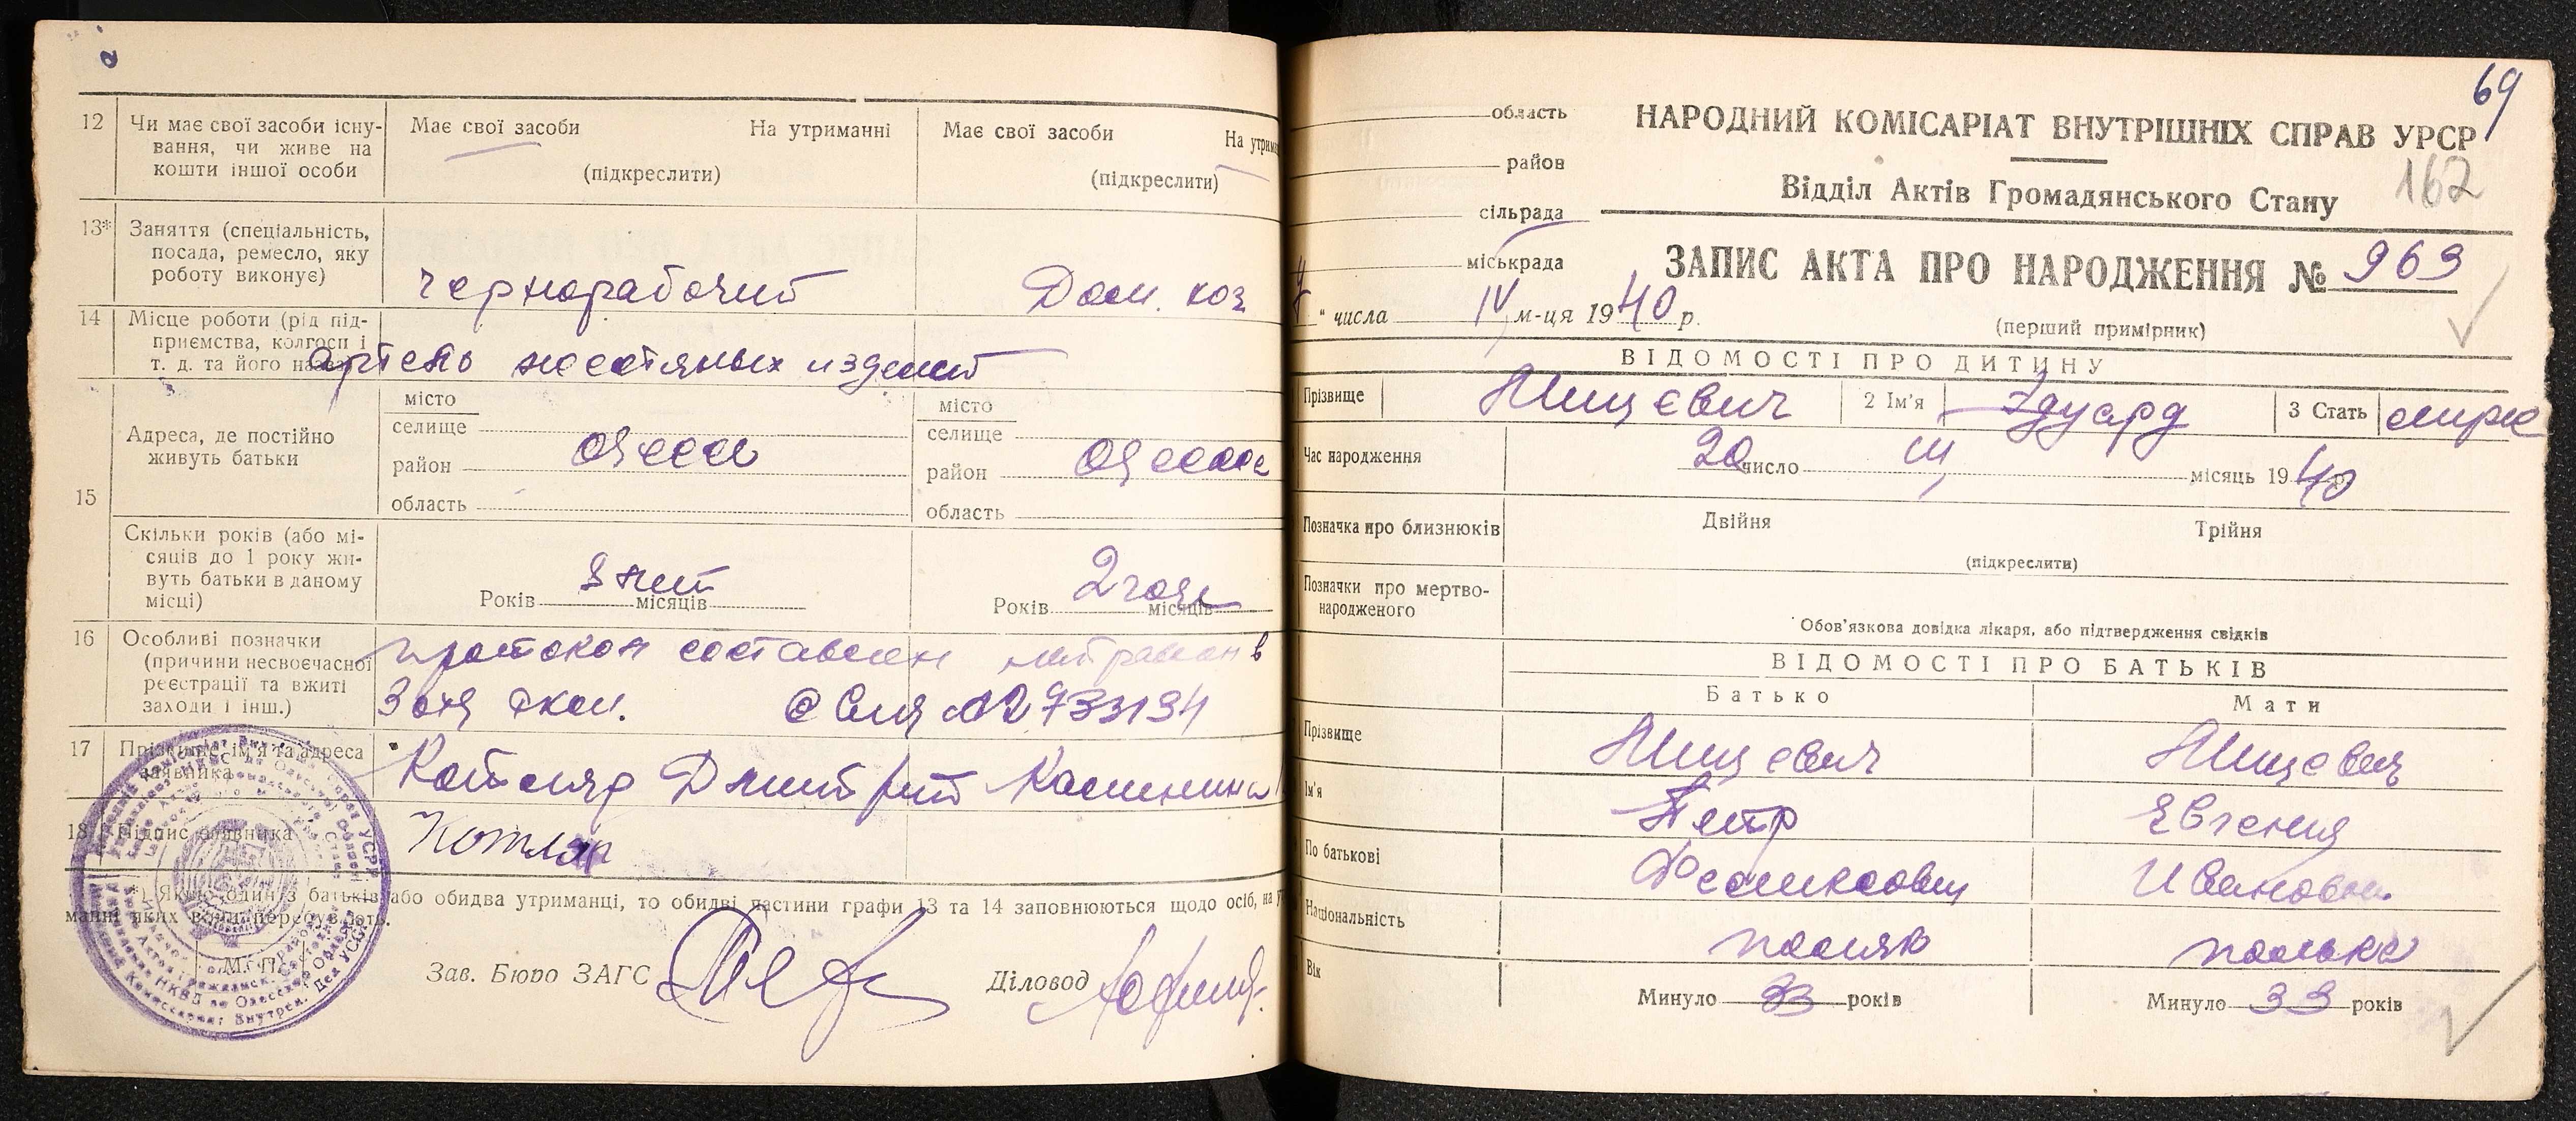 12 Чи має свої засоби існу-
вання, чи живе на
кошти іншої особи
Має свої засоби На утриманні
(підкреслити)
Має свої засоби На утрим
(підкреслити)
13* Заняття (спеціальність,
посада, ремесло, яку
роботу виконує)
чернорабочий
Дом. хоз
14 Місце роботи (рід під-
приємства, колгосп і
т. д. та його назва)
артель изделий
15 Адреса, де постійно
живуть батьки
місто
селище
район Одесса
область
місто
селище
район Одесса
область
Скільки років (або мі-
сяців до 1 року жи-
вуть батьки в даному
місці)
Років 8 лет місяців
Років 2 года місяців
16 Особливі позначки
(причини несвоєчасної
реєстрації та вжиті
заходи і інш.)
протокол составлен
733134
17 Прізвище, ім'я та адреса
заявника
Котляр Дмитрий
18 Підпис заявника
Котляр
*) Якщо один із батьків або обидва утриманці, то обидві частини графи 13 та 14 заповнюються щодо осіб, на у
манні яких вони перебувають.
М. П.
Зав. Бюро ЗАГС
Діловод
69
162
область
район
сільрада
міськрада
НАРОДНИЙ КОМІСАРІАТ ВНУТРІШНІХ СПРАВ УРСР
Відділ Актів Громадянського Стану
ЗАПИС АКТА ПРО НАРОДЖЕННЯ № 969
" числа IV м-ця 1940 р.
(перший примірник)
ВІДОМОСТІ ПРО ДИТИНУ
Прізвище 2 Ім'я Эдуард 3 Стать
Час народження 20 число III місяць 1940 р.
Позначка про близнюків Двійня Трійня
(підкреслити)
Позначки про мертво-
народженого
Обов'язкова довідка лікаря, або підтвердження свідків
ВІДОМОСТІ ПРО БАТЬКІВ
Батько Мати
Прізвище
Ім'я Петр Евгения
По батькові Феликсович Ивановна
Національність поляк полька
Вік Минуло 33 років Минуло 33 років